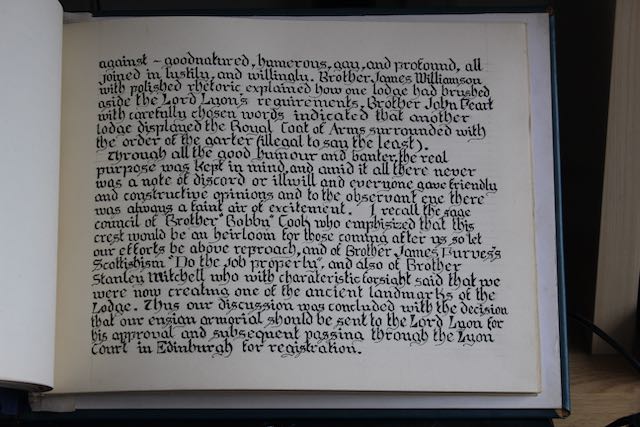 against ~ goodnatured, humerous, gay, and profound, all
joined in lustily, and willingly. Brother James Williamson
with polished rhetoric explained how one lodge had brushed
aside the Lord Lyon's requirements. Brother John Peart
with carefully chosen words indicated that another
lodge displayed the Royal Coat of Arms surrounded with
the order of the garter (illegal to say the least).
Through all the good humour and banter, the real
purpose was kept in mind, and amid it all there never
was a note of discord or illwill and everyone gave friendly
and constructive opinions and to the observant eye there
was always a faint air of excitement. I recall the sage
council of Brother "Bobby" Cook who emphisized that this
crest would be an heirloom for those coming after us, so let
our efforts be above reproach, and of Brother James Purves's
Scottishism "Do the job properly", and also of Brother
Stanley Mitchell who with charateristic forsight said that we
were now creating one of the ancient landmarks of the
Lodge. Thus our discussion was concluded with the decision
that our ensign armorial should be sent to the Lord Lyon for
his approval and subsequent passing through the Lyon
Court in Edinburgh for registration.